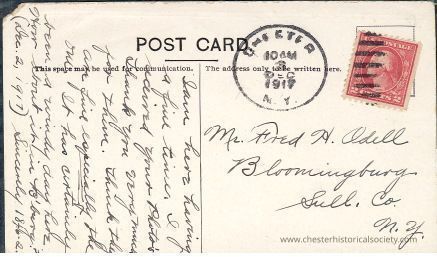 POST CARD
This space may be used for communication.
The address only to be written here.
CHESTER
10 AM
DEC
1917
N.Y.
Am here having
a fine time. I
received your Photo's
Thank you very much
for them. think they
are fine especially the
me. It has certainly
wind windy day here
How about it in
(Dec. 2, 1917) Sincerely
Mr. Fred H. Odell
Bloomingburg
Sull. Co.
N.Y.
www.chesterhistoricalsociety.com